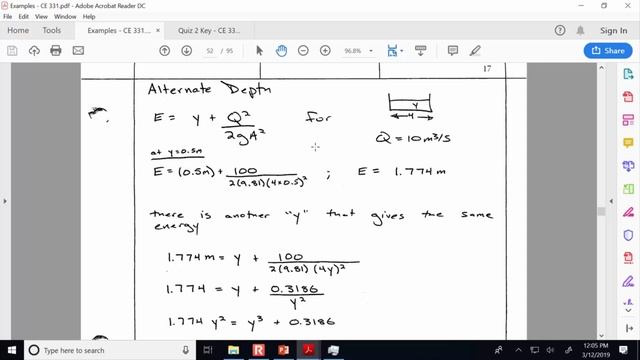 Examples - CE 331.pdf - Adobe Acrobat Reader DC
File Edit View Window Help
Home Tools Examples - CE 331.... × Quiz 2 Key - CE 33... Sign In
52 / 95 96.8% Share
17
Alternate Depth
E = y + Q²/2gA² for
y
4
Q = 10 m³/s
at y=0.5m
E = (0.5m) + 100/2(9.81)(4×0.5)² ; E = 1.774 m
there is another "y" that gives the same
energy
1.774 m = y + 100/2(9.81)(4y)²
1.774 = y + 0.3186/y²
1.774 y² = y³ + 0.3186
Type here to search
12:05 PM
3/12/2019